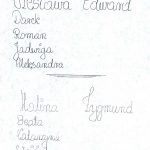 Wiesława Edward
Darek
Roman
Jadwiga
Aleksandra
Halina Zygmund
Beata
Katarzyna